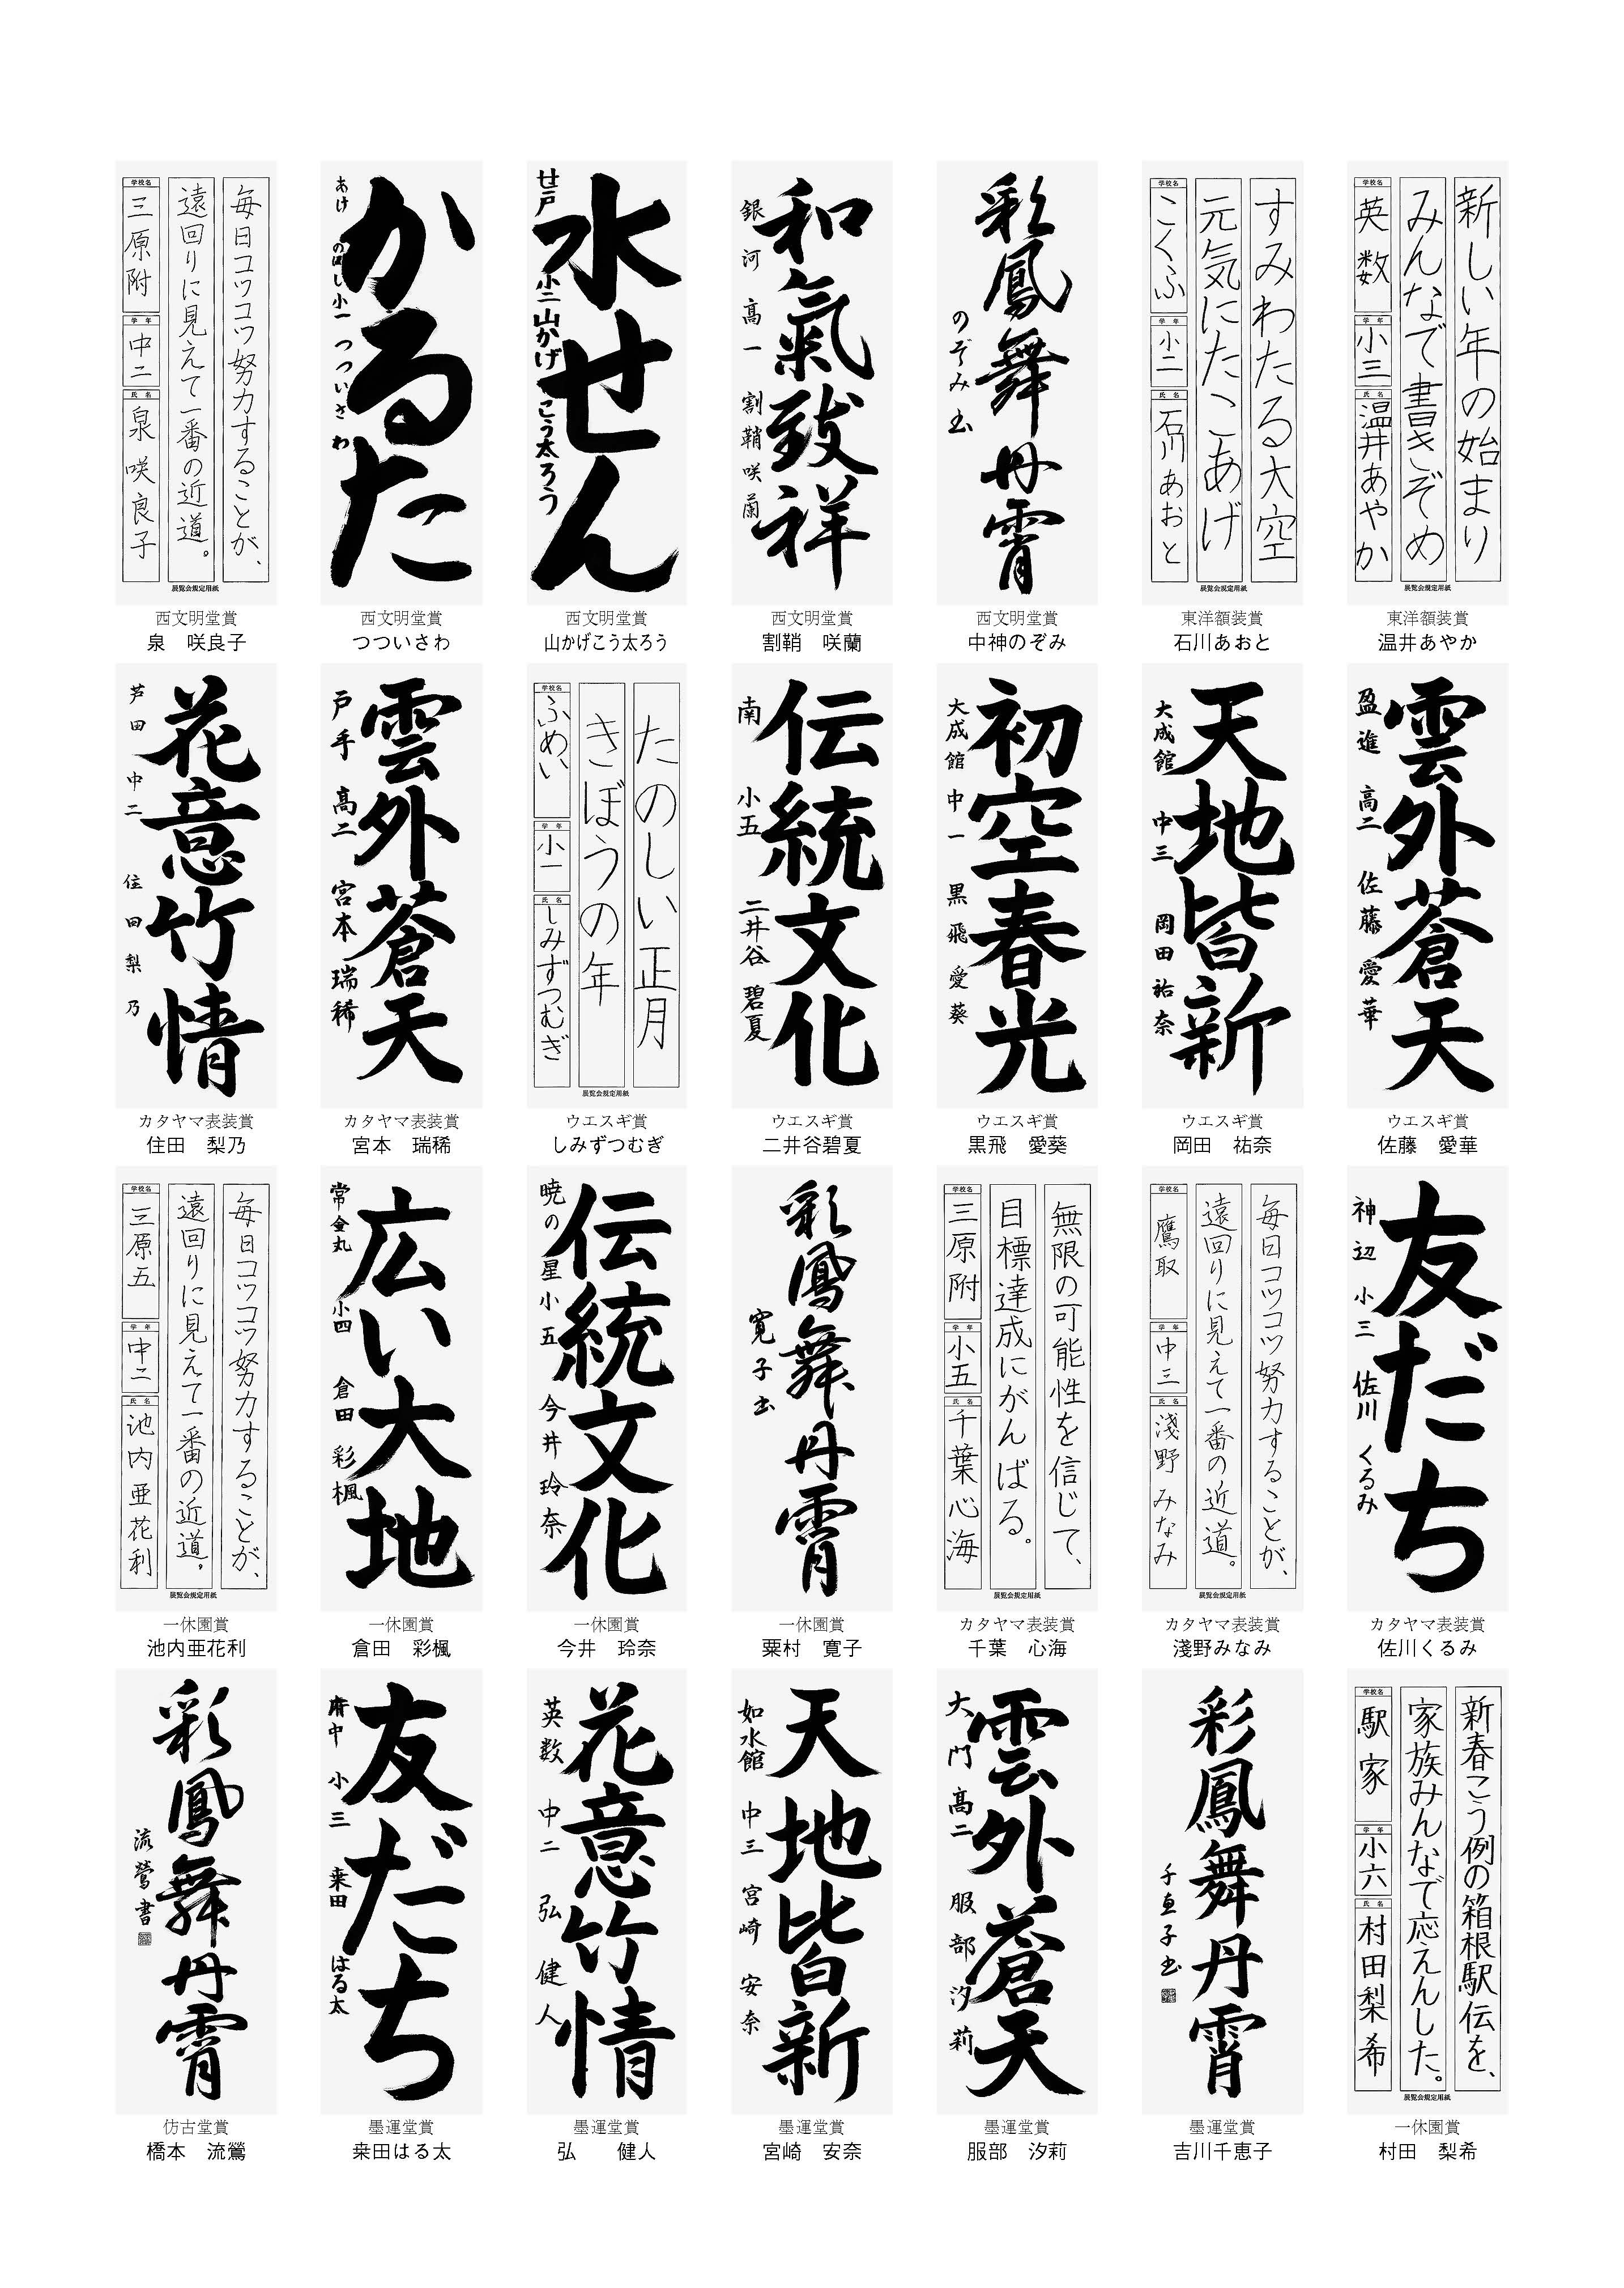 毎日コツコツ努力することが、
遠回りに見えて一番の近道。
学校名
三原附
学年
中二
氏名
泉咲良子
展覧会規定用紙
西文明堂賞
泉　咲良子
かるた
あけの星 小一 つついさわ
西文明堂賞
つついさわ
水せん
廿戸 小二 山かげこう太ろう
西文明堂賞
山かげこう太ろう
和氣致祥
銀河 高一 割鞘咲蘭
西文明堂賞
割鞘　咲蘭
彩鳳舞丹霄
のぞみ书
西文明堂賞
中神のぞみ
すみわたる大空
元気にたこあげ
学校名
こくふ
学年
小二
氏名
石川あおと
展覧会規定用紙
東洋額装賞
石川あおと
新しい年の始まり
みんなで書きぞめ
学校名
英数
学年
小三
氏名
温井あやか
展覧会規定用紙
東洋額装賞
温井あやか
花意竹情
芦田 中二 住田梨乃
カタヤマ表装賞
住田　梨乃
雲外蒼天
戸手 高二 宮本瑞稀
カタヤマ表装賞
宮本　瑞稀
たのしい正月
きぼうの年
学校名
ふめい
学年
小一
氏名
しみずつむぎ
展覧会規定用紙
ウエスギ賞
しみずつむぎ
伝統文化
南 小五 二井谷碧夏
ウエスギ賞
二井谷碧夏
初空春光
大成館 中一 黒飛愛葵
ウエスギ賞
黒飛　愛葵
天地皆新
大成館 中三 岡田祐奈
ウエスギ賞
岡田　祐奈
雲外蒼天
盈進 高二 佐藤愛華
ウエスギ賞
佐藤　愛華
毎日コツコツ努力することが、
遠回りに見えて一番の近道。
学校名
三原五
学年
中二
氏名
池内亜花利
展覧会規定用紙
一休園賞
池内亜花利
広い大地
常金丸 小四 倉田彩楓
一休園賞
倉田　彩楓
伝統文化
暁の星 小五 今井玲奈
一休園賞
今井　玲奈
彩鳳舞丹霄
寛子书
一休園賞
粟村　寛子
無限の可能性を信じて、
目標達成にがんばる。
学校名
三原附
学年
小五
氏名
千葉心海
展覧会規定用紙
カタヤマ表装賞
千葉　心海
毎日コツコツ努力することが、
遠回りに見えて一番の近道。
学校名
鷹取
学年
中三
氏名
淺野みなみ
展覧会規定用紙
カタヤマ表装賞
淺野みなみ
友だち
神辺 小三 佐川くるみ
カタヤマ表装賞
佐川くるみ
彩鳳舞丹霄
流鶯書
仿古堂賞
橋本　流鶯
友だち
府中 小三 来田はる太
墨運堂賞
来田はる太
花意竹情
英数 中二 弘健人
墨運堂賞
弘　　健人
天地皆新
如水館 中三 宮崎安奈
墨運堂賞
宮崎　安奈
雲外蒼天
大門 高二 服部汐莉
墨運堂賞
服部　汐莉
彩鳳舞丹霄
千恵子书
墨運堂賞
吉川千恵子
新春こう例の箱根駅伝を、
家族みんなで応えんした。
学校名
駅家
学年
小六
氏名
村田梨希
展覧会規定用紙
一休園賞
村田　梨希